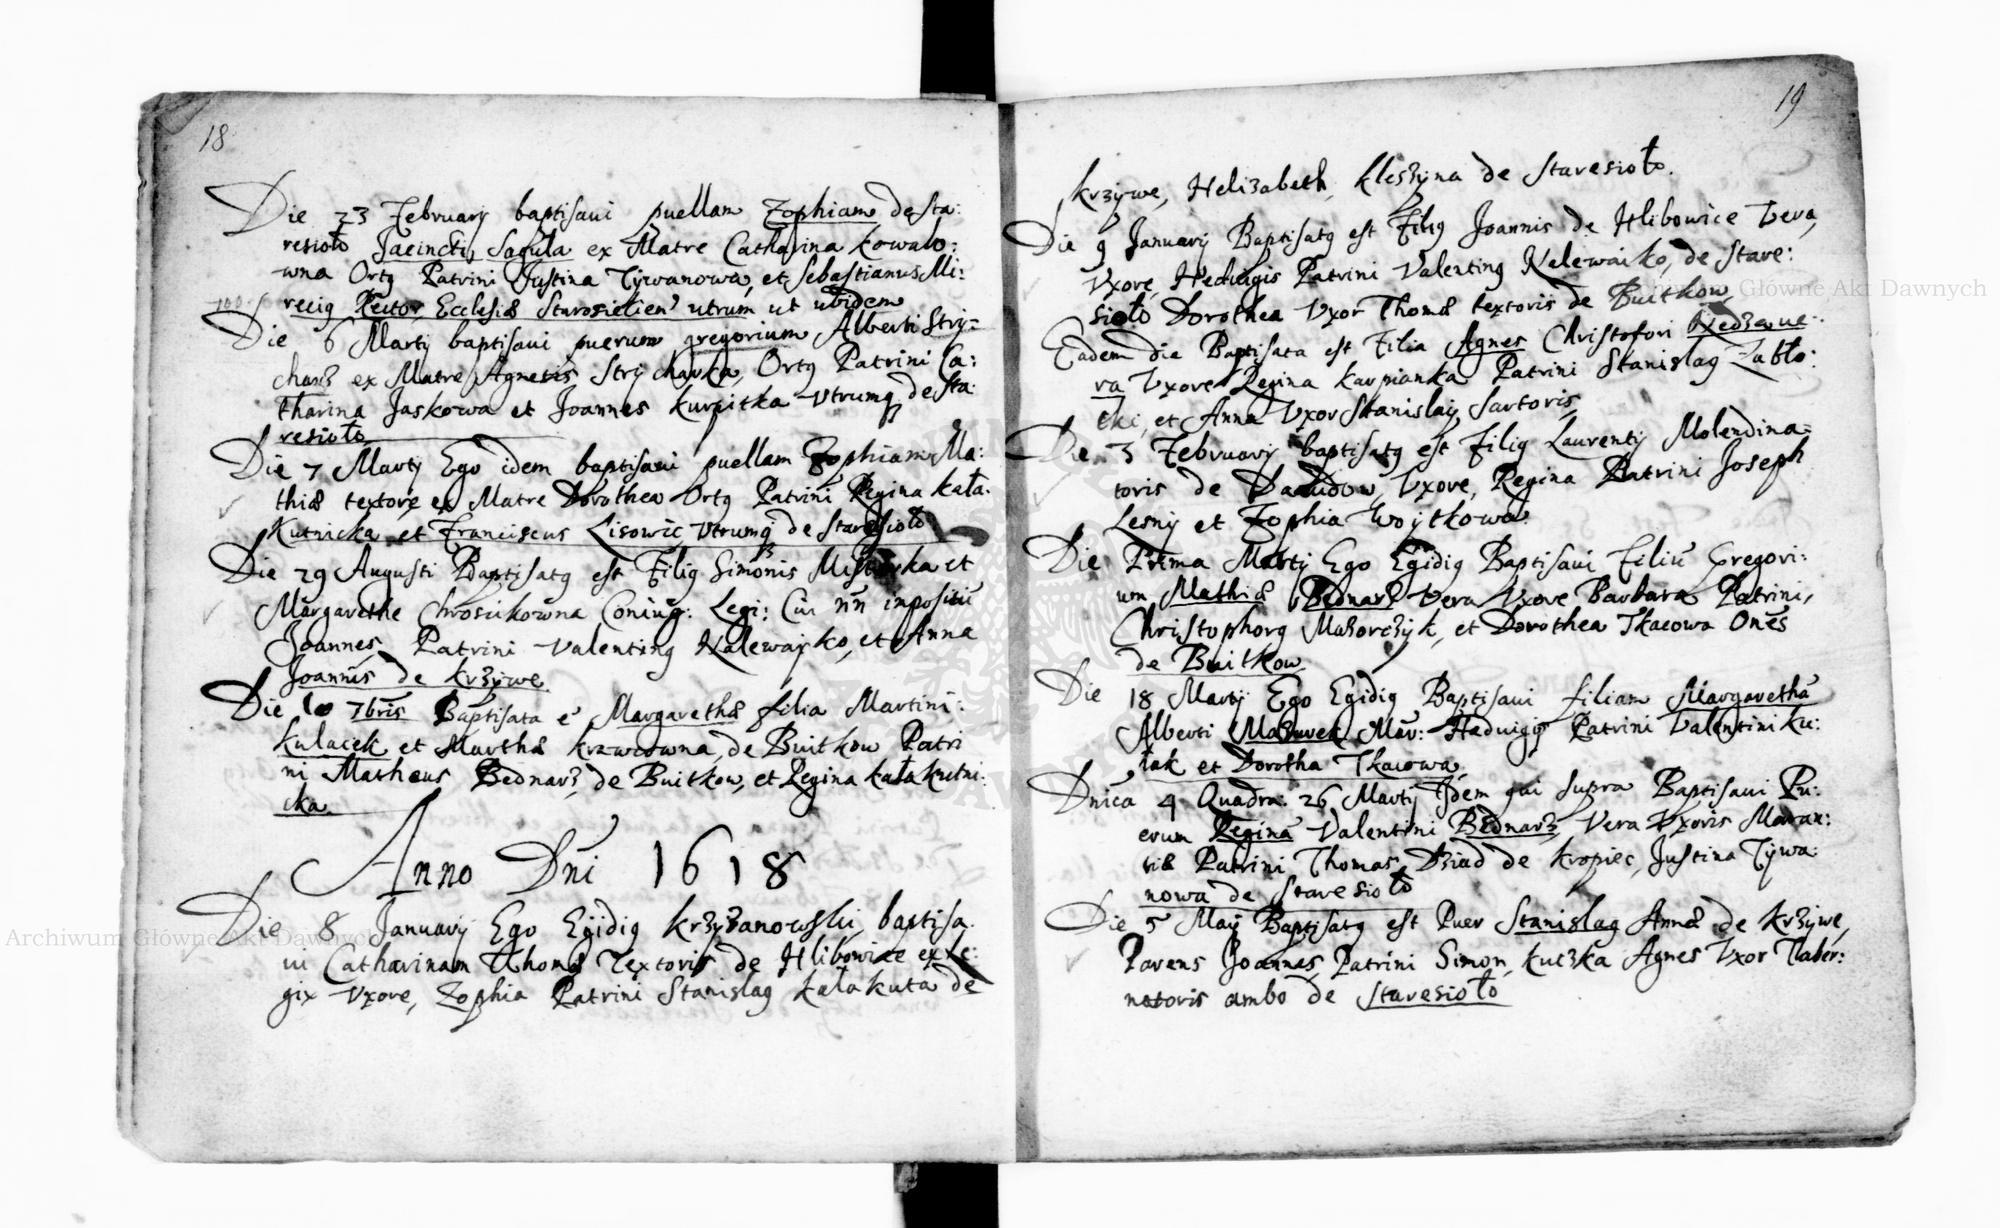 18
Die 23 February baptisavi puellam Zophiam de Sta:
resioło Jacincti Sagula ex Matre Catharina Kowalo:
wna Ortg Patrini Justina Tywanowa, et Sebastianus Mi:
recig Rector Ecclesiæ Starosielien utrum ut ubidem
Die 6 Martij baptisavi puerum gregorium Alberti Stry:
charz ex Matre Agnetis Strycharka, Ortg Patrini Ca:
tharina Jaskowa et Joannes Kurpitka Vtrumq de Sta
resioło
Die 7 Martij Ego idem baptisavi puellam Zophiam Ma:
thiæ textore ex Matre Dorothea Ortg Patrini Regina Kała:
Kutnicka et Franciscus Lisowic Vtrumq de Staresioło
Die 29 Augusti Baptisatg est Filig Simonis et
Margarethe Chrosiukowna Coniug: Legi: Cui nn inpositu
Joannes, Patrini Valenting Nalewayko, et Anna
Joannis de Krzywe
Die 10 7bris Baptisata e Margaretha filia Martini:
Kulacek et Marthæ Krawcowna de Buitkow Patri
ni Matheus Bednarz de Buitkow, et Regina Kałakutni:
cka
Anno Dni 1618
Die 8 Januarij Ego Egidig Krzyzanowski, baptisa
ui Catharinam Thomæ Textoris de Hlibowice ex Le:
gix Vxore, Zophia Patrini Stanislag Kałakuta de
19
Krzywe, Helizabeth Kleszyna de Staresioło.
Die 9 Januarij Baptisatg est Filig Joannis de Hlibowice Vera,
Vxore, Hedwigis Patrini Valenting Nelewaiko, de Stare:
sioło Dorothea Vxor Thomæ textoris de Buitkow
Eadem die Baptisata est Filia Agnes Christofori
ra Vxore Regina Karpianka Patrini Stanislag Zabło:
cki, et Anna Vxor Stanislaij Sartoris
Die 3 February baptisatg est Filig Laurentij Molendina=
toris de Dawidow, Vxore, Regina Patrini Joseph
Lesny et Zophia Woytkowa
Die Prima Martij Ego Egidig Baptisavi Filiu Gregori:
um Mathiæ Bednarz Vera Vxore Barbara Patrini,
Christophorg Mazorczyk, et Dorothea Tkacowa Ones
de Buitkow
Die 18 Martij Ego Egidig Baptisaui filiam Margaretha
Alberti Mazurek Mar: Hadwigis Patrini Valentini Ku:
łak et Dorotha Tkacowa
Dnica 4 Quadra: 26 Martij Idem qui supra Baptisavi Pu:
erum Regina Valentini Bednarz, Vera Vxoris
Patrini Thomas Dziad de Kropiec, Justina Tywa
nowa de Staresioło
Die 5 Maij Baptisatg est Puer Stanislag Annæ de Krzywe,
Parens Joannes, Patrini Simon, Kuczka Agnes Vxor Taber:
natoris ambo de Staresioło
Archiwum Główne Akt Dawnych
Archiwum Główne Akt Dawnych